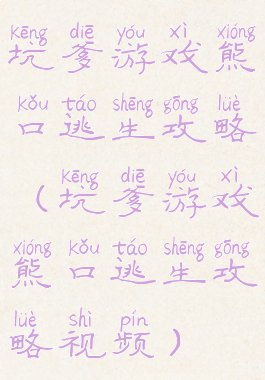 kēng diē yóu xì xióng
坑爹游戏熊
kǒu táo shēng gōng lüè
口逃生攻略
kēng diē yóu xì
（坑爹游戏
xióng kǒu táo shēng gōng
熊口逃生攻
lüè shì pín
略视频）